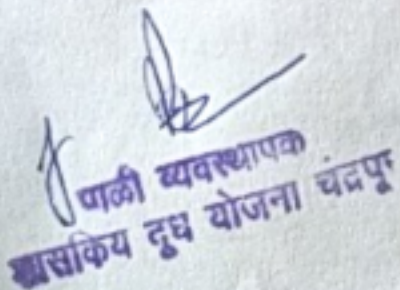 पाळी व्यवस्थापक
शासकिय दूध योजना चंद्रपूर